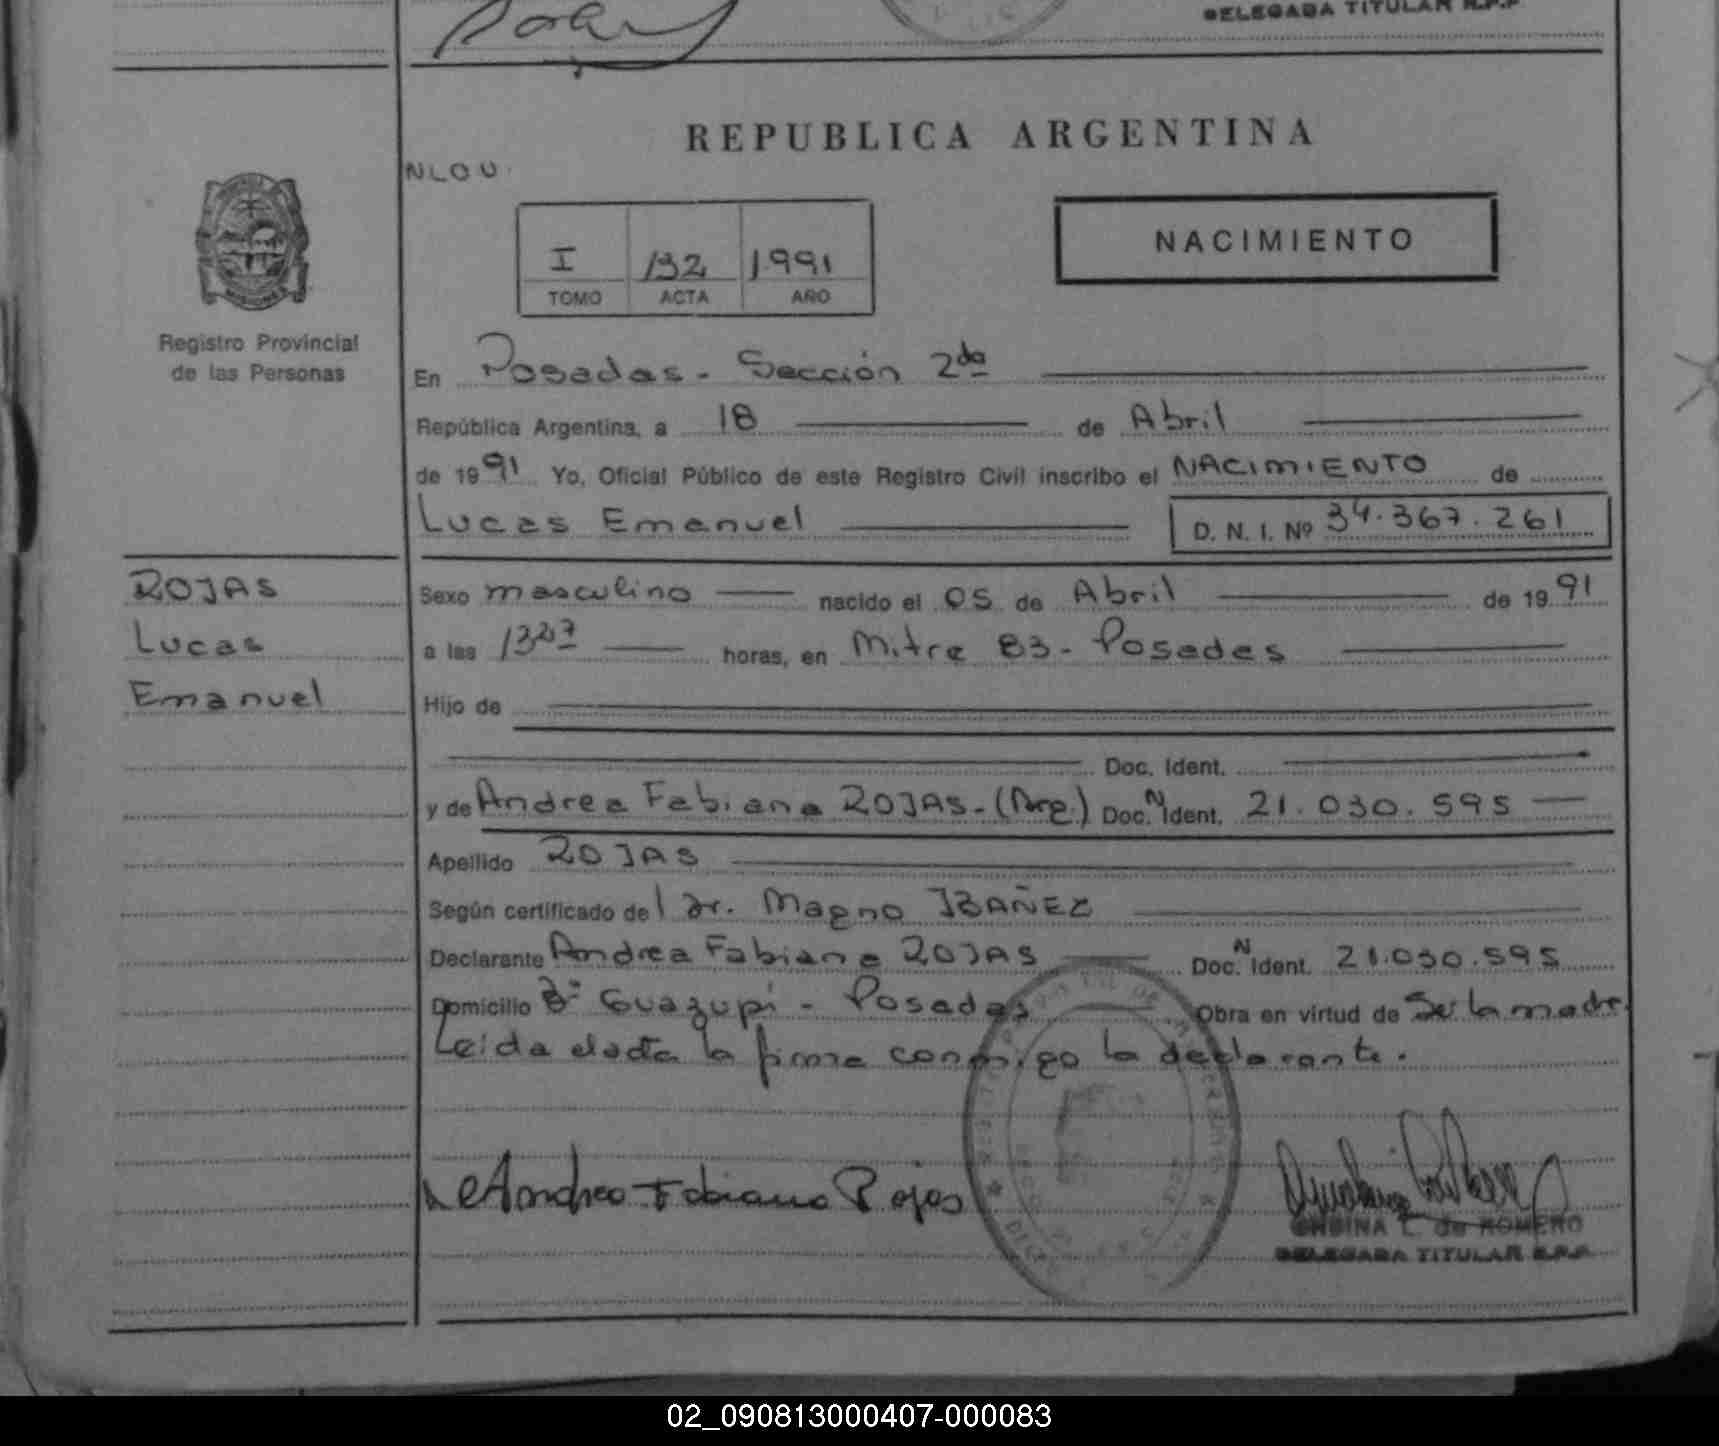 DELEGADA TITULAR R.P.P.
REPUBLICA ARGENTINA
NLOU.
NACIMIENTO
I 132 1.991
TOMO ACTA AÑO
Registro Provincial
de las Personas
En Posadas - Sección 2da
República Argentina, a 18 de Abril
de 1991 Yo, Oficial Público de este Registro Civil inscribo el NACIMIENTO de
Lucas Emanuel D. N. I. Nº 34.367.261
ROJAS
Lucas
Emanuel
Sexo masculino nacido el 05 de Abril de 1991
a las 1327 horas, en Mitre 83 - Posadas
Hijo de
Doc. Ident.
y de Andrea Fabiana ROJAS - (Arg.) Doc. N Ident. 21.030.595
Apellido ROJAS
Según certificado del Dr. Magno IBAÑEZ
Declarante Andrea Fabiana ROJAS Doc. N Ident. 21.030.595
Domicilio Bº Guazupi - Posadas Obra en virtud de Ser la madre.
Leida el acta la firma conmigo la declarante.
Andrea Fabiana Rojas
L. de ROMERO
DELEGADA TITULAR R.P.P.
02_090813000407-000083